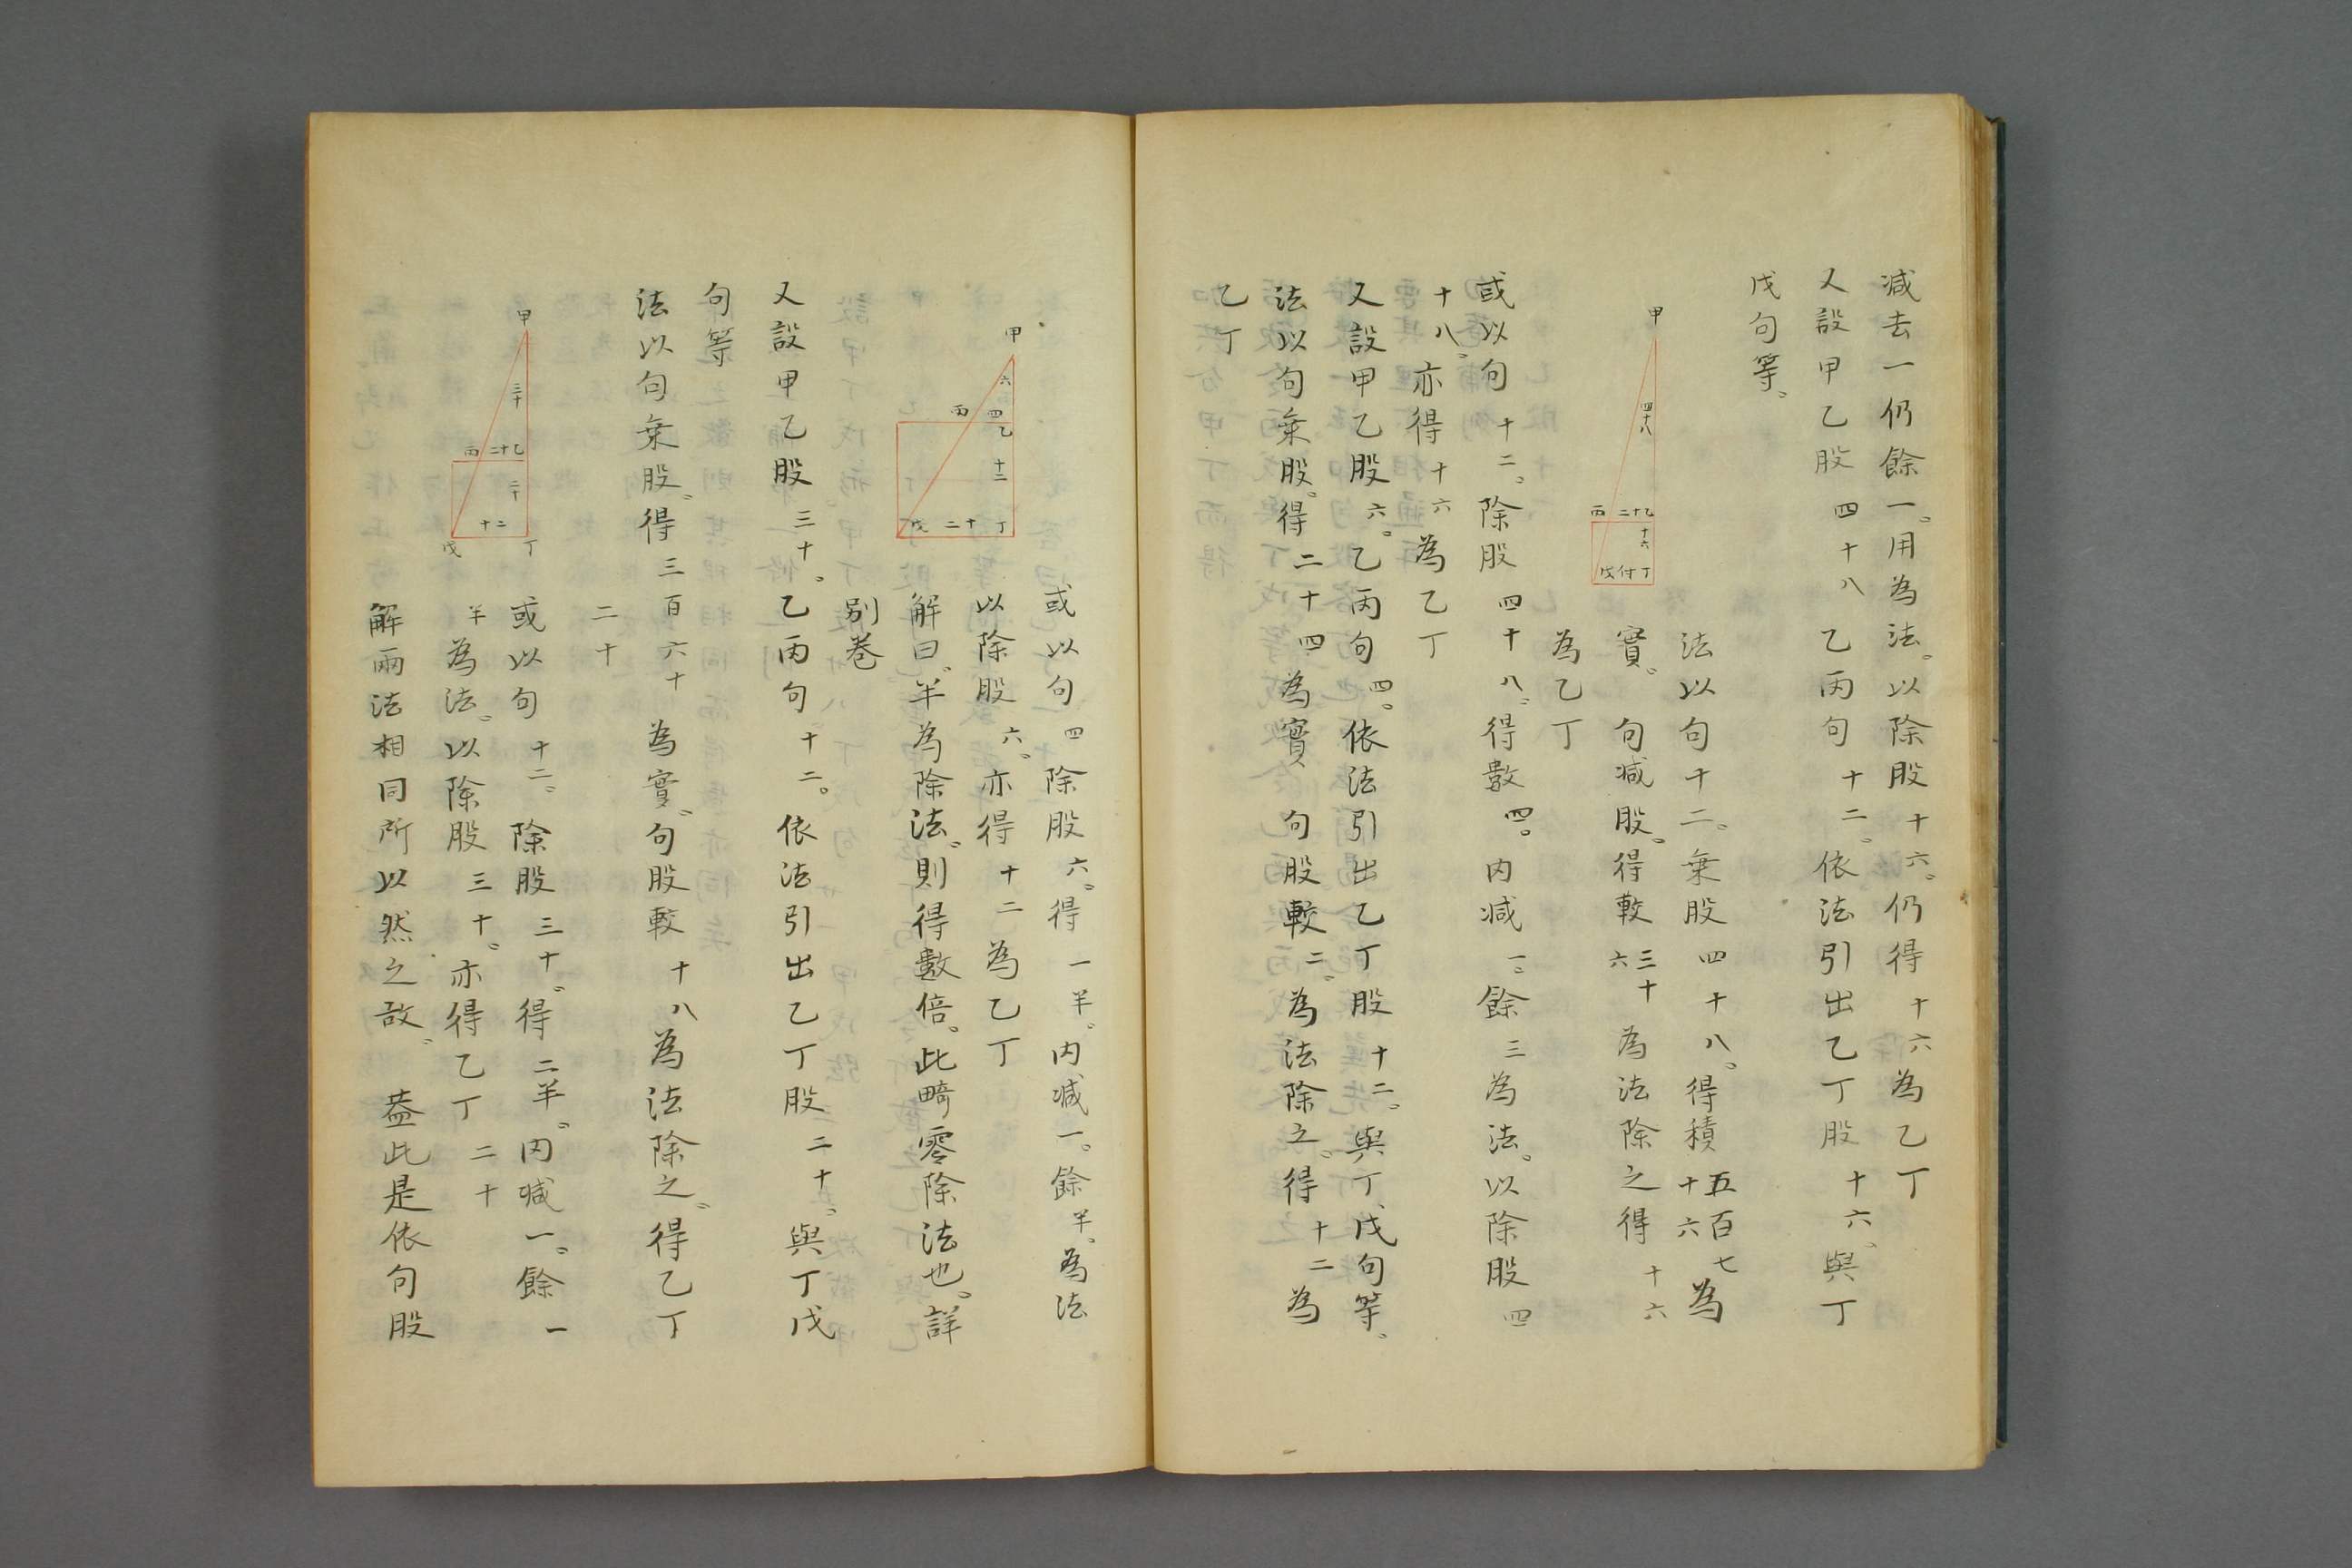 減去一仍餘一。用為法。以除股十六。仍得十六為乙丁
又設甲乙股四十八乙丙句十二。依法引出乙丁股十六、與丁
戊句等、
甲
四十八
丙 二十乙
十六
戊 丁
法以句十二。乗股四十八。得積五百七十六為
實。句減股。得較三十六為法除之得十六
為乙丁
或以句十二。除股四十八。得數四。内減一。餘三為法。以除股四
十八。亦得十六為乙丁
又設甲乙股六。乙丙句四。依法引出乙丁股十二。與丁戊句等、
法以句乗股。得二十四為實句股較二。為法除之。得十二為
乙丁
甲
六
丙 四 乙
十二
戊 二十 丁
或以句四除股六。得一半。内減一。餘半。為法
以除股六。亦得十二為乙丁
解曰。半為除法。則得數倍。此畸零除法也。詳
別卷
又設甲乙股三十。乙丙句十二。依法引出乙丁股二十。與丁戊
句等
法以句乗股。得三百六十為實。句股較十八為法除之。得乙丁
二十
甲
三十
丙 二十乙
二十
十二
戊 丁
或以句十二。除股三十。得二半。内減一。餘一
半為法。以除股三十。亦得乙丁二十
解兩法相同所以然之故。葢此是依句股